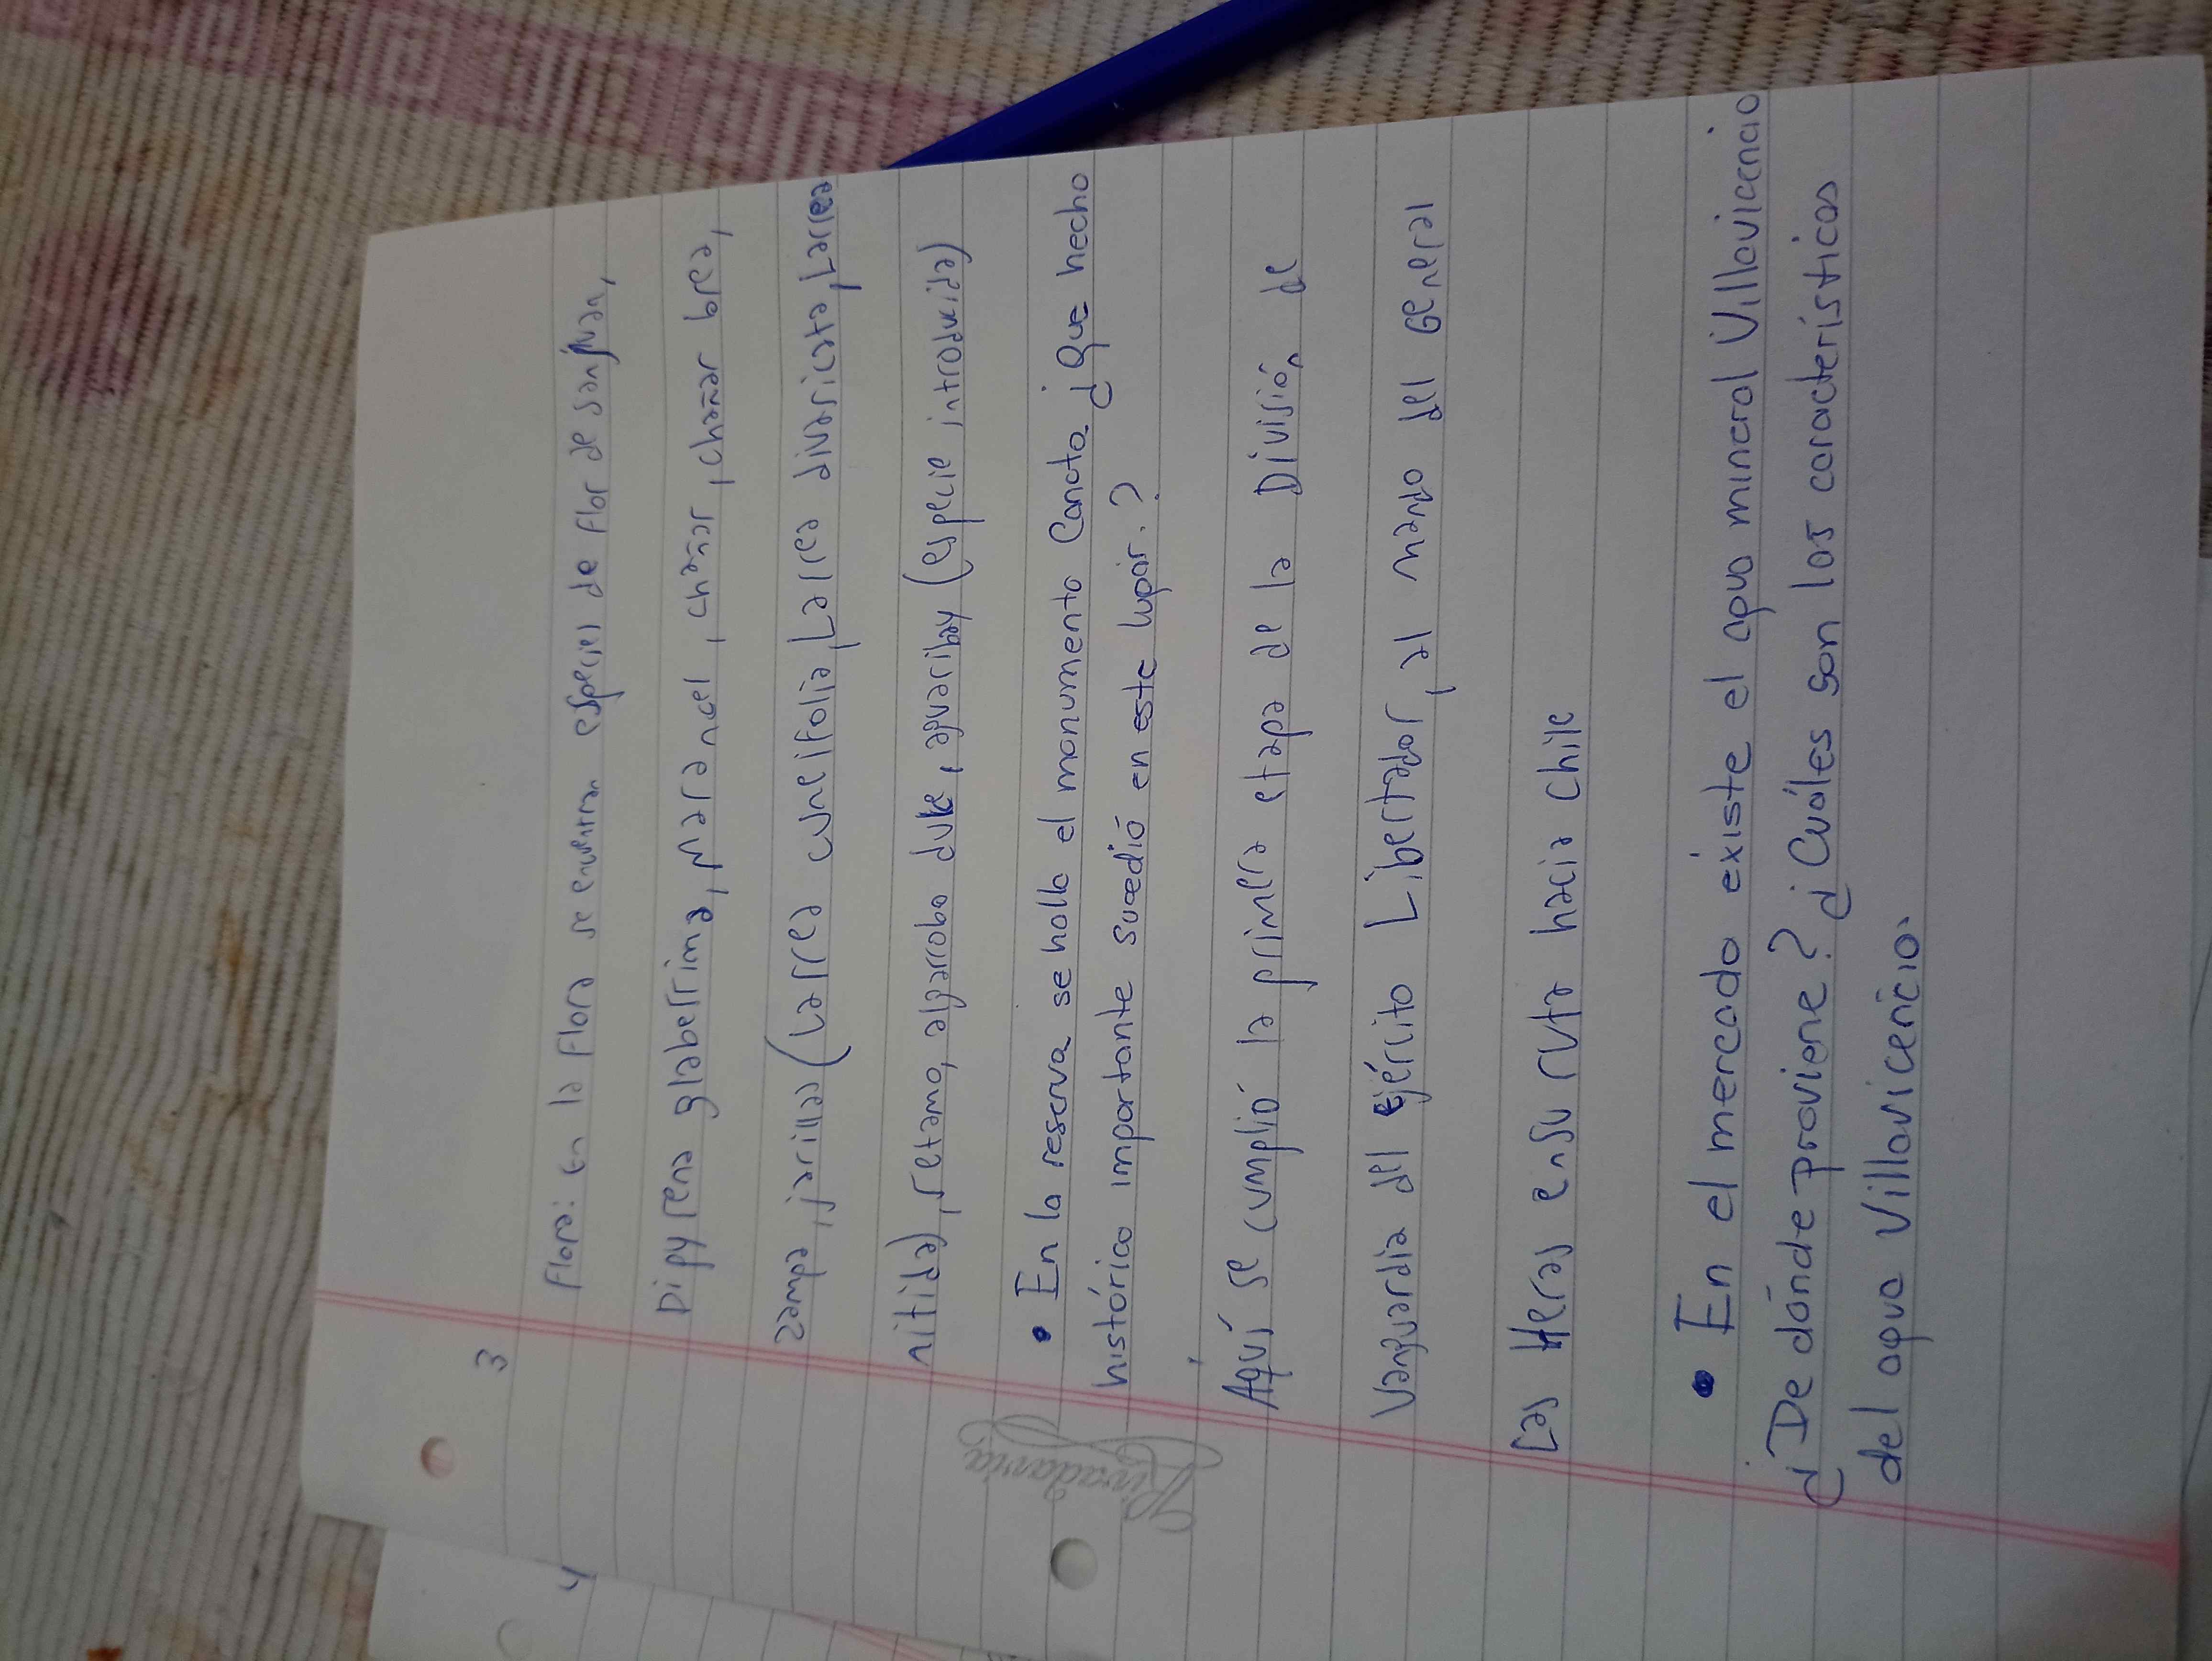 3
Flora: en la flora se encuentran especies de flor de sanjuan,
Dipyrena glaberrima, Mararanel, chañar, chañar brea,
zampa, jarilla (Larrea cuneifolia, Larrea divaricata, Larrea
nitida), retamo, algarrobo dulce, hedionda (especie introducida)
• En la reserva se halla el monumento Canota ¿Que hecho
histórico importante sucedió en este lugar.?
Aquí se cumplió la primera etapa de la División de
Vanguardia del Ejército Libertador, al mando del Gral
Las Heras en su ruta hacia Chile
• En el mercado existe el agua mineral Villavicencio
¿De dónde proviene? ¿Cuáles son las características
del agua Villavicencio.
Rivadavia
4